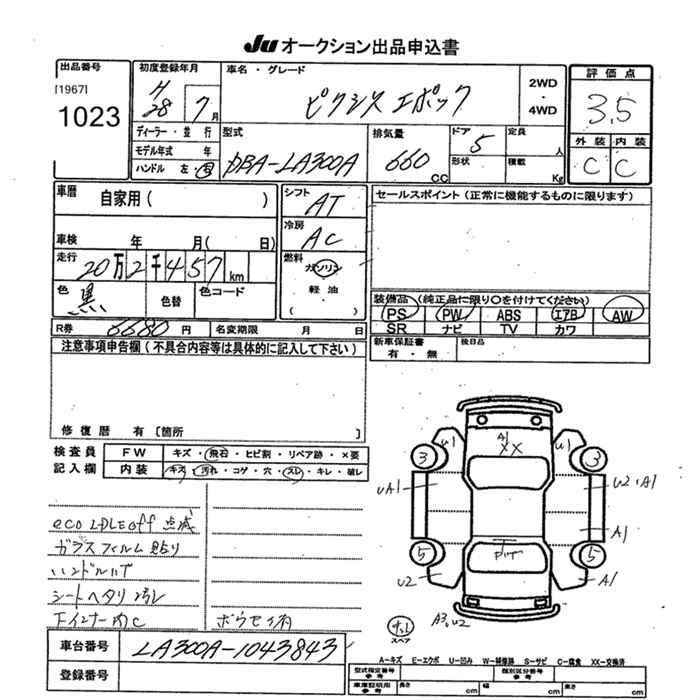 Ju オークション出品申込書
出品番号
[1967]
1023
初度登録年月
H
28 7月
車名・グレード
ピクシス エポック
2WD
・
4WD
評価点
3.5
外装 内装
C C
ディーラー・並行
モデル年式 年
ハンドル 左・右
型式
DBA-LA300A
排気量
660 CC
ドア 5
形状
定員 人
積載 Kg
車暦
自家用( )
車検 年 月( 日)
走行
20万2千457km
色 黒
色替
色コード
シフト
AT
冷房
AC
燃料
ガソリン
軽油
( )
セールスポイント(正常に機能するものに限ります)
装備品(純正品に限り○を付けてください)
PS PW ABS エアB AW
SR ナビ TV カワ
新車保証書
有・無
後日品
R券 6680円
名変期限 月 日
注意事項申告欄(不具合内容等は具体的に記入して下さい)
修復暦 有[箇所 ]
検査員
記入欄
FW キズ・飛石・ヒビ割・リペア跡・×要
内装 キズ・汚れ・コゲ・穴・スレ・キレ・破レ
eco IDLE off 点滅
ガラスフィルム貼り
ハンドルハゲ
シートヘタリ 汚レ
Fインナー内C
車台番号
LA300A-1043843
登録番号
U1 A1 XX U1
3 3
UA1 U2・A1
A1
5 5
U2 A1
A3、U2
スペア
A-キズ E-エクボ U-凹み W-補修跡 S-サビ C-腐食 XX-交換済
型式指定番号
参考
類別区分番号
参考
車庫証明用
参考
長さ cm 幅 cm 高さ cm